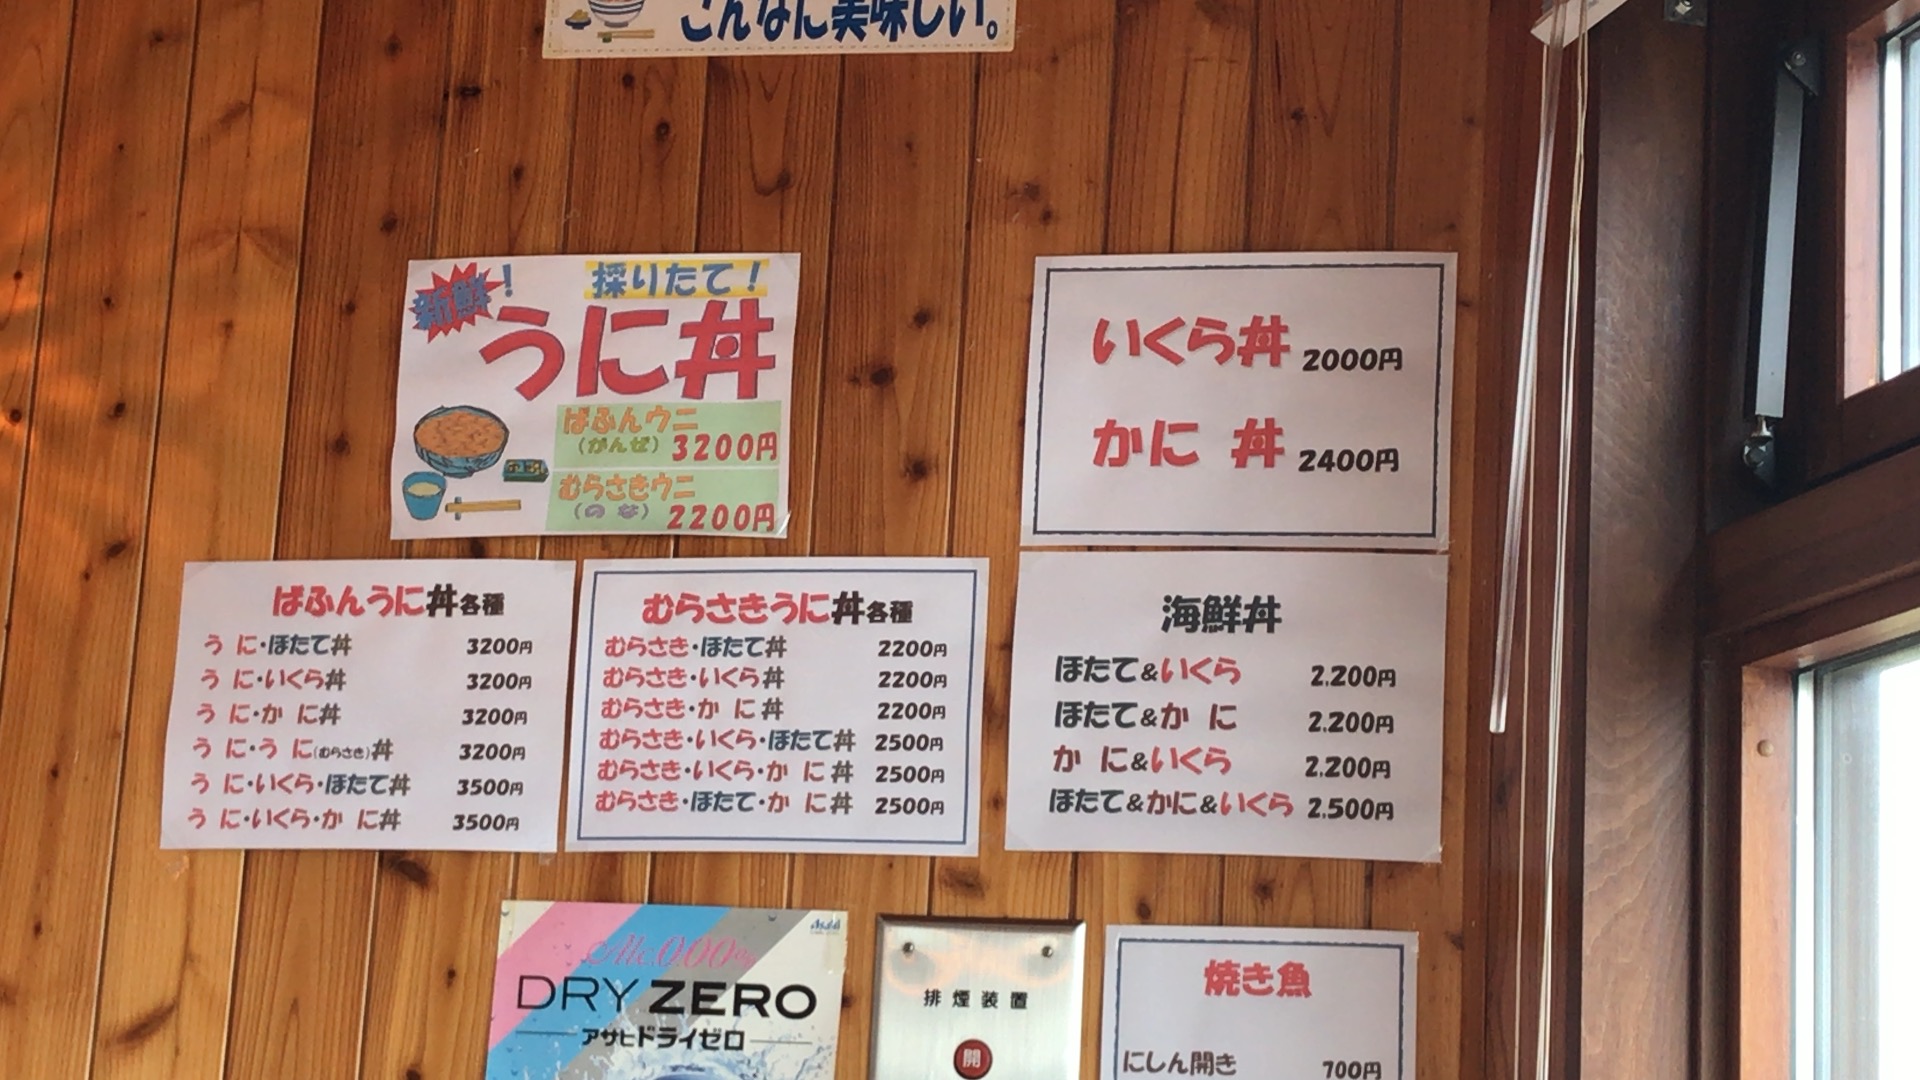 こんなに美味しい。
新鮮!
採りたて!
うに丼
ばふんウニ
(がんぜ) 3200円
むらさきウニ
(のな) 2200円
いくら丼 2000円
かに 丼 2400円
ばふんうに丼各種
う に・ほたて丼 3200円
う に・いくら丼 3200円
う に・か に丼 3200円
う に・う に(むらさき)丼 3200円
う に・いくら・ほたて丼 3500円
う に・いくら・か に丼 3500円
むらさきうに丼各種
むらさき・ほたて丼 2200円
むらさき・いくら丼 2200円
むらさき・か に丼 2200円
むらさき・いくら・ほたて丼 2500円
むらさき・いくら・か に丼 2500円
むらさき・ほたて・か に丼 2500円
海鮮丼
ほたて&いくら 2.200円
ほたて&か に 2.200円
か に&いくら 2.200円
ほたて&かに&いくら 2.500円
Asahi
Alc.0.00%
DRY ZERO
アサヒドライゼロ
排煙装置
開
焼き魚
にしん開き 700円